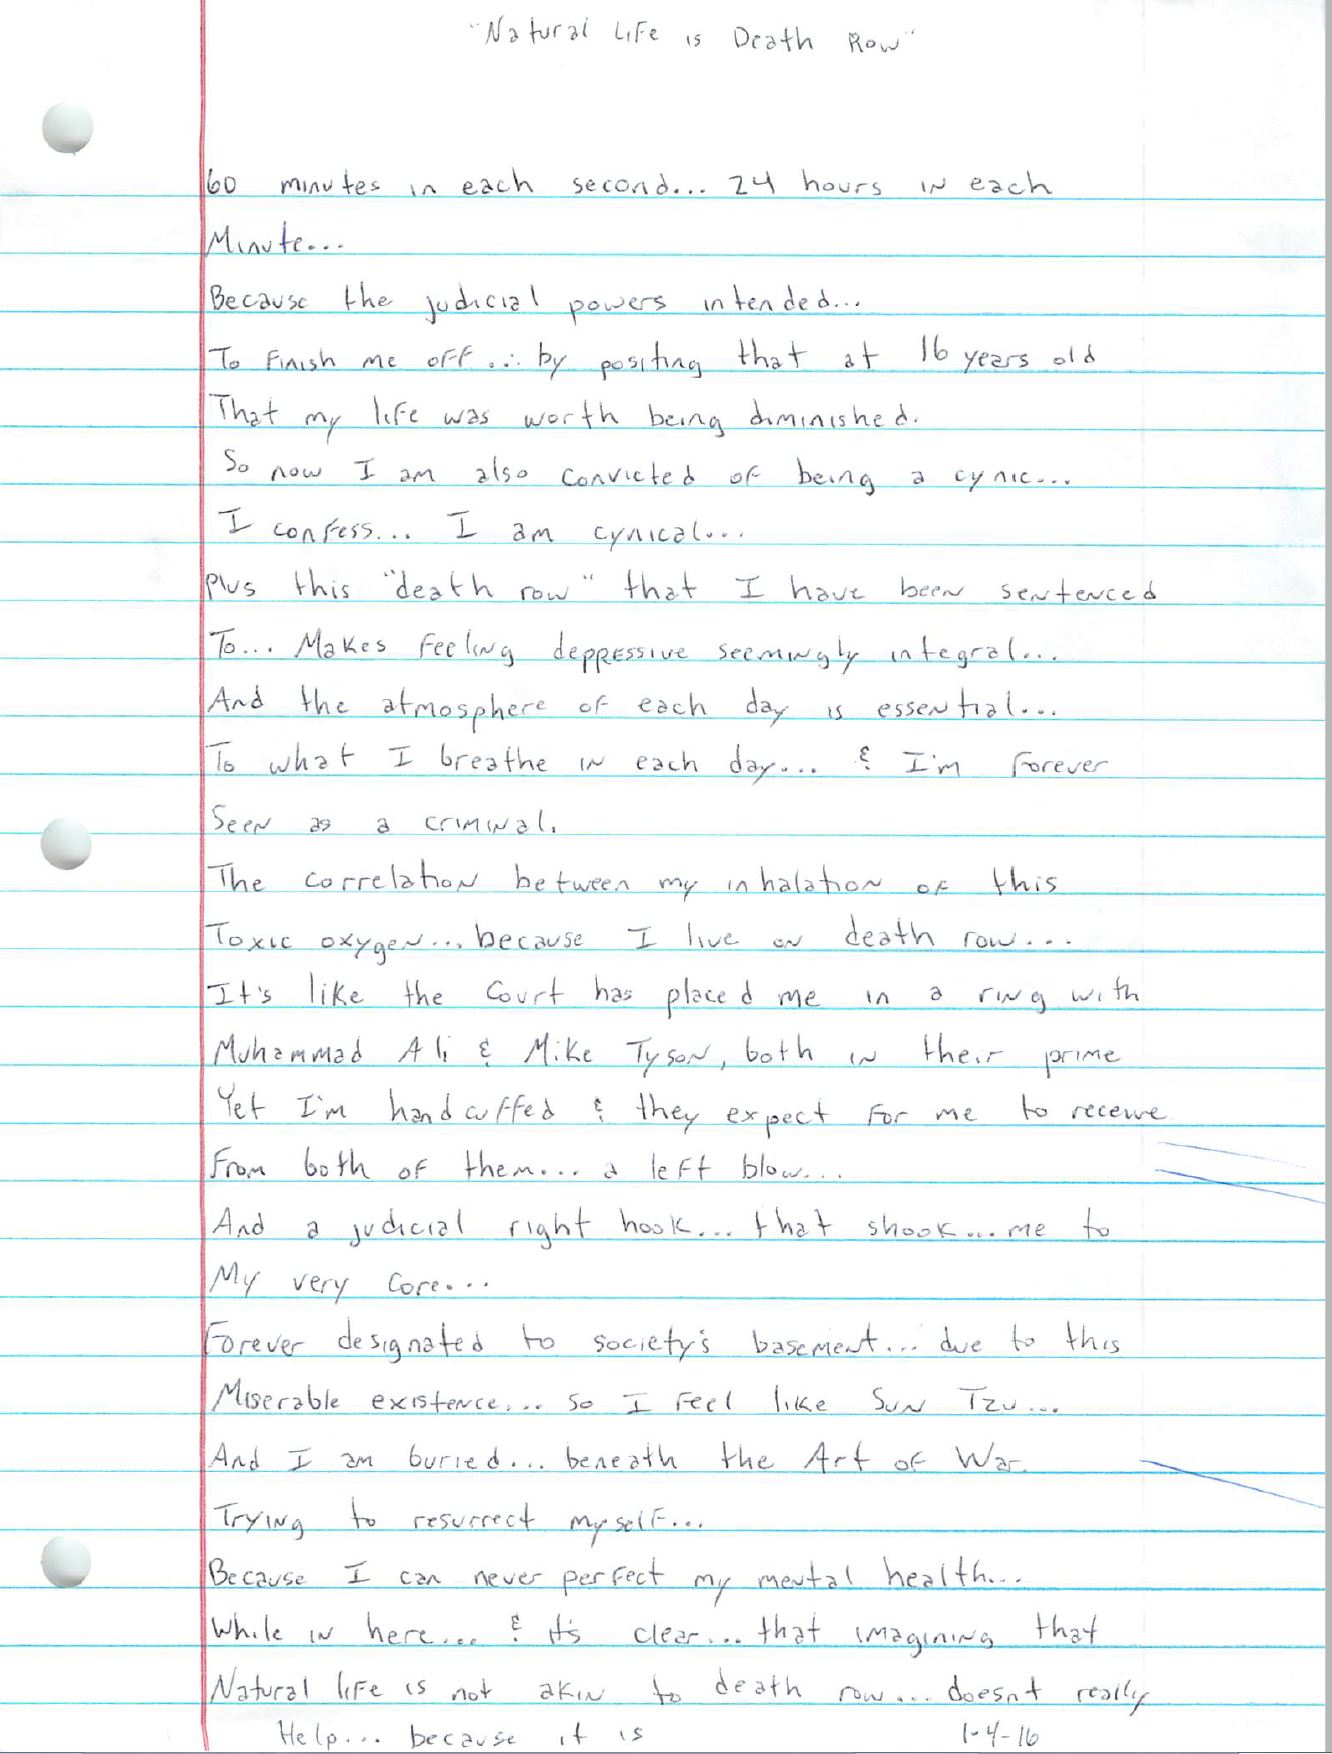 "Natural Life is Death Row"
60 minutes in each second... 24 hours in each
Minute...
Because the judicial powers intended...
To Finish me off... by positing that at 16 years old
That my life was worth being diminished.
So now I am also convicted of being a cynic...
I confess... I am cynical...
Plus this "death row" that I have been sentenced
To... Makes Feeling deppressive seemingly integral...
And the atmosphere of each day is essential...
To what I breathe in each day... & I'm Forever
Seen as a criminal.
The correlation between my inhalation of this
Toxic oxygen... because I live on death row...
It's like the Court has placed me in a ring with
Muhammad Ali & Mike Tyson, both in their prime
Yet I'm handcuffed & they expect For me to receive
From both of them... a left blow...
And a judicial right hook... that shook... me to
My very Core...
Forever designated to society's basement... due to this
Miserable existence... so I Feel like Sun Tzu...
And I am buried... beneath the Art of War.
Trying to resurrect myself...
Because I can never perfect my mental health...
While in here... & it's clear... that imagining that
Natural life is not akin to death row... doesnt really
Help... because it is
1-4-16